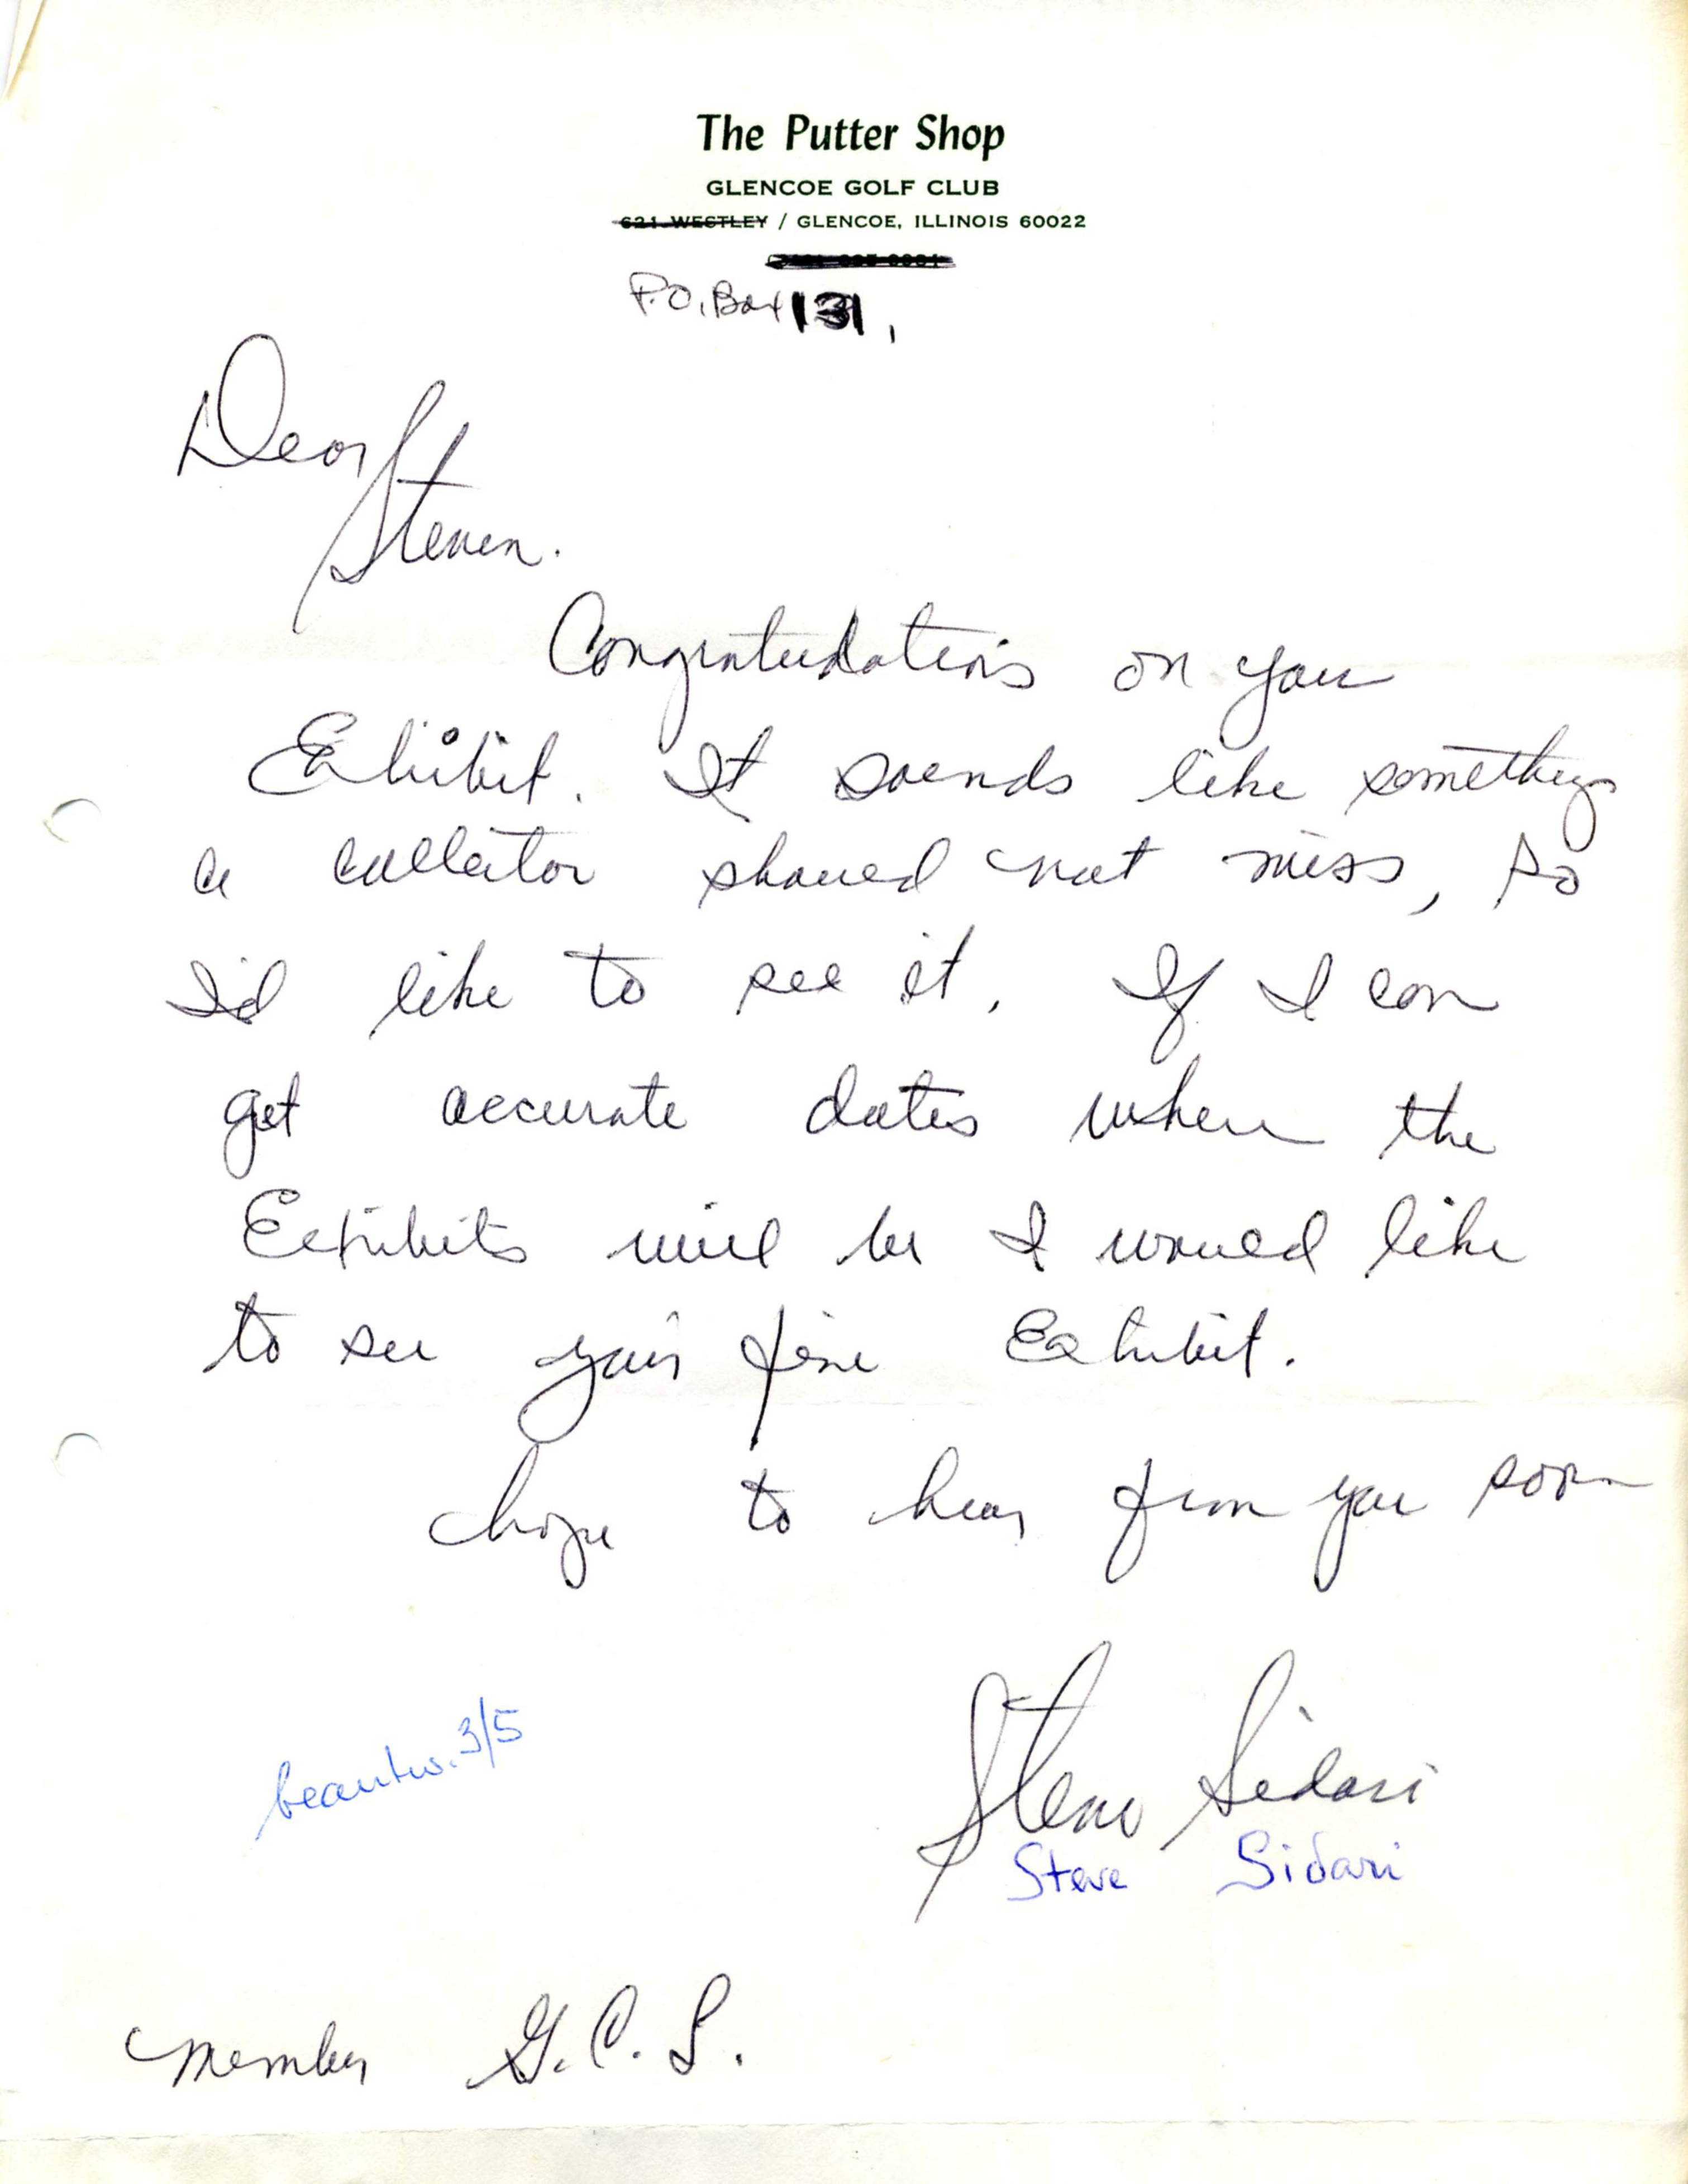 The Putter Shop
GLENCOE GOLF CLUB
621 WESTLEY / GLENCOE, ILLINOIS 60022
P.O. Box 131,
Dear
Steven.
Congratulations on your
Exhibit. It sounds like something
a collector should not miss, so
I'd like to see it. If I can
get accurate dates when the
Exhibits will be I would like
to see your fine Exhibit.
hope to hear from you soon
3/5
Steve Sidari
Steve Sidari
member G.C.S.